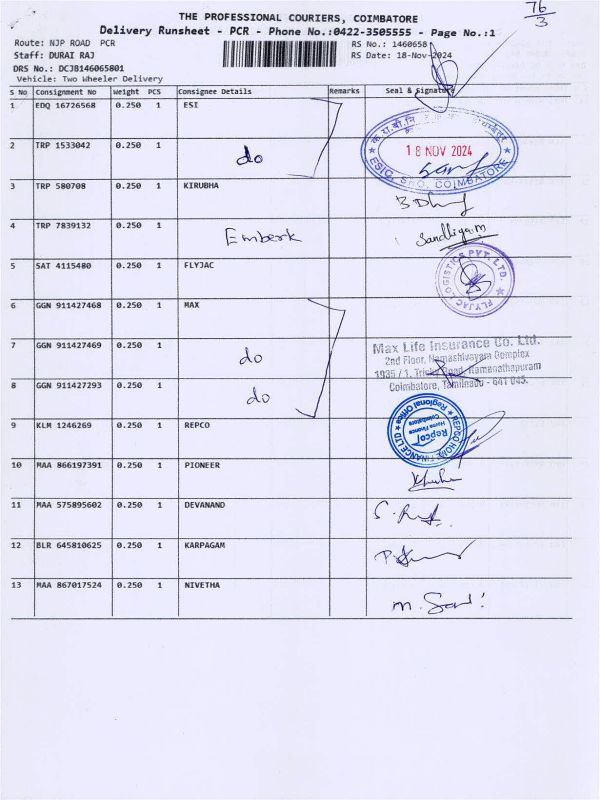 76
3
THE PROFESSIONAL COURIERS, COIMBATORE
Delivery Runsheet - PCR - Phone No.:0422-3505555 - Page No.:1
Route: NJP ROAD PCR
RS No.: 1460658
Staff: DURAI RAJ
RS Date: 18-Nov-2024
DRS No.: DCJB146065801
Vehicle: Two Wheeler Delivery
S No Consignment No Weight PCS Consignee Details Remarks Seal & Signature
1 EDQ 16726568 0.250 1 ESI
2 TRP 1533042 0.250 1 do
18 NOV 2024
COIMBATORE
3 TRP 580708 0.250 1 KIRUBHA
4 TRP 7839132 0.250 1 Embark
5 SAT 4115480 0.250 1 FLYJAC
FLYJAC LOGISTICS PVT. LTD.
6 GGN 911427468 0.250 1 MAX
7 GGN 911427469 0.250 1 do
Max Life Insurance Co. Ltd.
2nd Floor, Namashivayam Complex
1935 / 1, Trichy Road, Ramanathapuram
Coimbatore, Tamilnadu - 641 045.
8 GGN 911427293 0.250 1 do
9 KLM 1246269 0.250 1 REPCO
REPCO HOME FINANCE LTD
Regional Office
Coimbatore
Repco
Home Finance
10 MAA 866197391 0.250 1 PIONEER
11 MAA 575895602 0.250 1 DEVANAND
12 BLR 645810625 0.250 1 KARPAGAM
13 MAA 867017524 0.250 1 NIVETHA